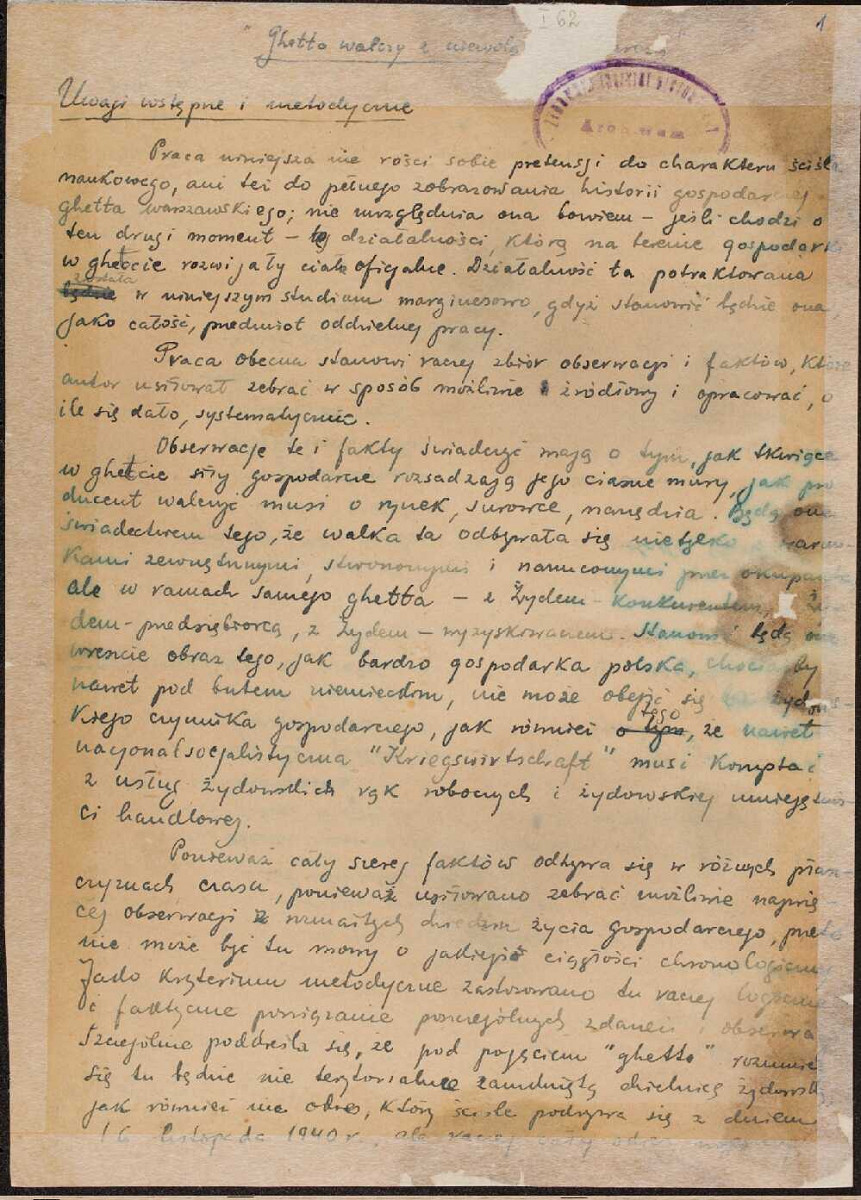 I 62
1
"Ghetto walczy z niewolą
Uwagi wstępne i metodyczne
Praca niniejsza nie rości sobie pretensji do charakteru ściśle
naukowego, ani też do pełnego zobrazowania historii gospodarczej
ghetta warszawskiego; nie uwzględnia ona bowiem – jeśli chodzi o
ten drugi moment – tej działalności, którą na terenie gospodarki
w ghetcie rozwijały ciała oficjalne. Działalność ta potraktowana
została
będzie w niniejszym studium marginesowo, gdyż stanowić będzie ona,
jako całość, przedmiot oddzielnej pracy.
Praca obecna stanowi raczej zbiór obserwacji i faktów, które
autor usiłował zebrać w sposób możliwie źródłowy i opracować, o
ile się dało, systematycznie.
Obserwacje te i fakty świadczyć mają o tym, jak tkwiące
w ghetcie siły gospodarcze rozsadzają jego ciasne mury, jak pro
ducent walczyć musi o rynek, surowce, narzędzia. Będą one
świadectwem tego, że walka ta odbywała się nietylko z warun-
kami zewnętrznymi, stworzonymi i narzuconymi przez okupanta
ale w ramach samego ghetta – z Żydem-konkurentem, Ży
dem-przedsiębiorcą, z Żydem – wyzyskiwaczem. Stanowić będą one
wreszcie obraz tego, jak bardzo gospodarka polska, chociażby
nawet pod butem niemieckim, nie może obejść się bez żydows-
kiego czynnika gospodarczego, jak również o tym, że nawet
tego
nacjonalsocjalistyczna "Kriegswirtschaft" musi korzystać
z usług żydowskich rąk roboczych i żydowskiej umiejętnoś-
ci handlowej.
Ponieważ cały szereg faktów odbywa się w różnych płasz-
czyznach czasu, ponieważ usiłowano zebrać możliwie najwię-
cej obserwacji z rozmaitych dziedzin życia gospodarczego, przeto
nie może być tu mowy o jakiejś ciągłości chronologicznej
Jako kryterium metodyczne zastosowano tu raczej logiczne
i faktyczne powiązanie poszczególnych zdarzeń i obserwa
Szczególnie podkreśla się, że pod pojęciem "ghetto" rozumieć
się tu będzie nie terytorialnie zamkniętą dzielnicę żydowską
jak również nie okres, który ściśle pokrywa się z dniem
16 listopada 1940 r., ale raczej cały